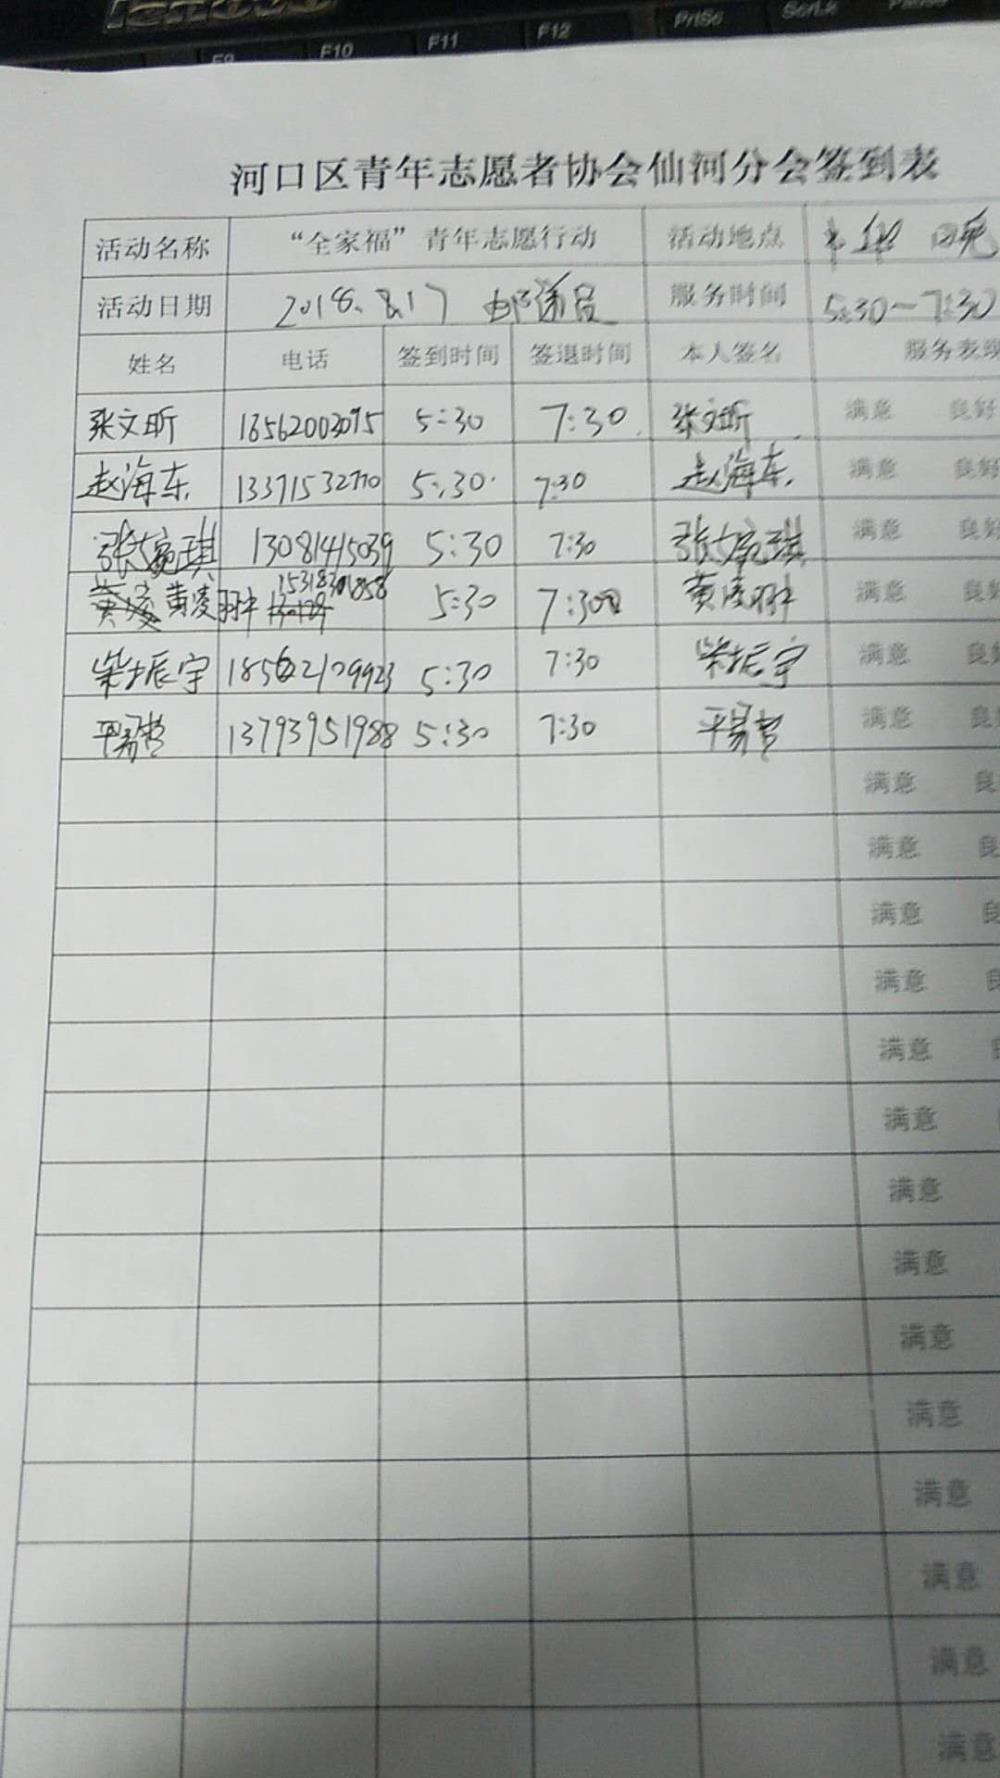 lenovo
F9 F10 F11 F12 PrtSc ScrLk
河口区青年志愿者协会仙河分会签到表
活动名称 “全家福”青年志愿行动 活动地点
活动日期 2018.8.17 邮递员 服务时间 5:30～7:30
姓名 电话 签到时间 签退时间 本人签名 服务表现
张文昕 16562003075 5:30 7:30 张文昕 满意 良好
赵海东 13371532770 5:30 7:30 赵海东 满意 良好
张婉琪 13081415039 5:30 7:30 张婉琪 满意 良好
黄凌翀 15318301858 5:30 7:30 黄凌翀 满意 良好
柴振宇 18562109923 5:30 7:30 柴振宇 满意 良好
平易哲 13793951988 5:30 7:30 平易哲 满意 良好
满意 良
满意 良
满意 良
满意 良
满意 良
满意
满意
满意
满意
满意
满意
满意
满意
满意